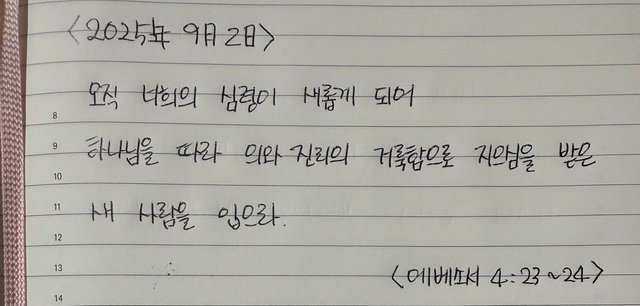 <2025年 9月 2日>
오직 너희의 심령이 새롭게 되어
8
9 하나님을 따라 의와 진리의 거룩함으로 지으심을 받은
10
11 새 사람을 입으라.
12
13 <에베소서 4:23~24>
14